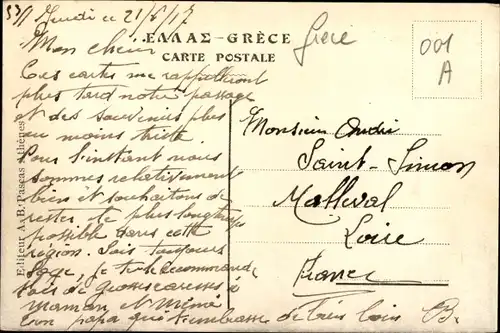 Jeudi le 21/6/17
ΕΛΛΑΣ-GRÈCE
CARTE POSTALE
Grèce
001
A
Mon chéri
Ces cartes me rappelleront
plus tard notre passage
et des souvenirs plus
ou moins triste
Pour l'instant nous
sommes relativement
bien et souhaitons de
rester le plus longtemps
possible dans cette
région. Sois toujours
sage, je te le recommande
fais de grosses caresses à
maman et Mémé
ton papa qui t'embrasse de très loin B.
Monsieur André
Saint-Simon
Malleval
Loire
France
Editeur A. B. Pascas Athènes